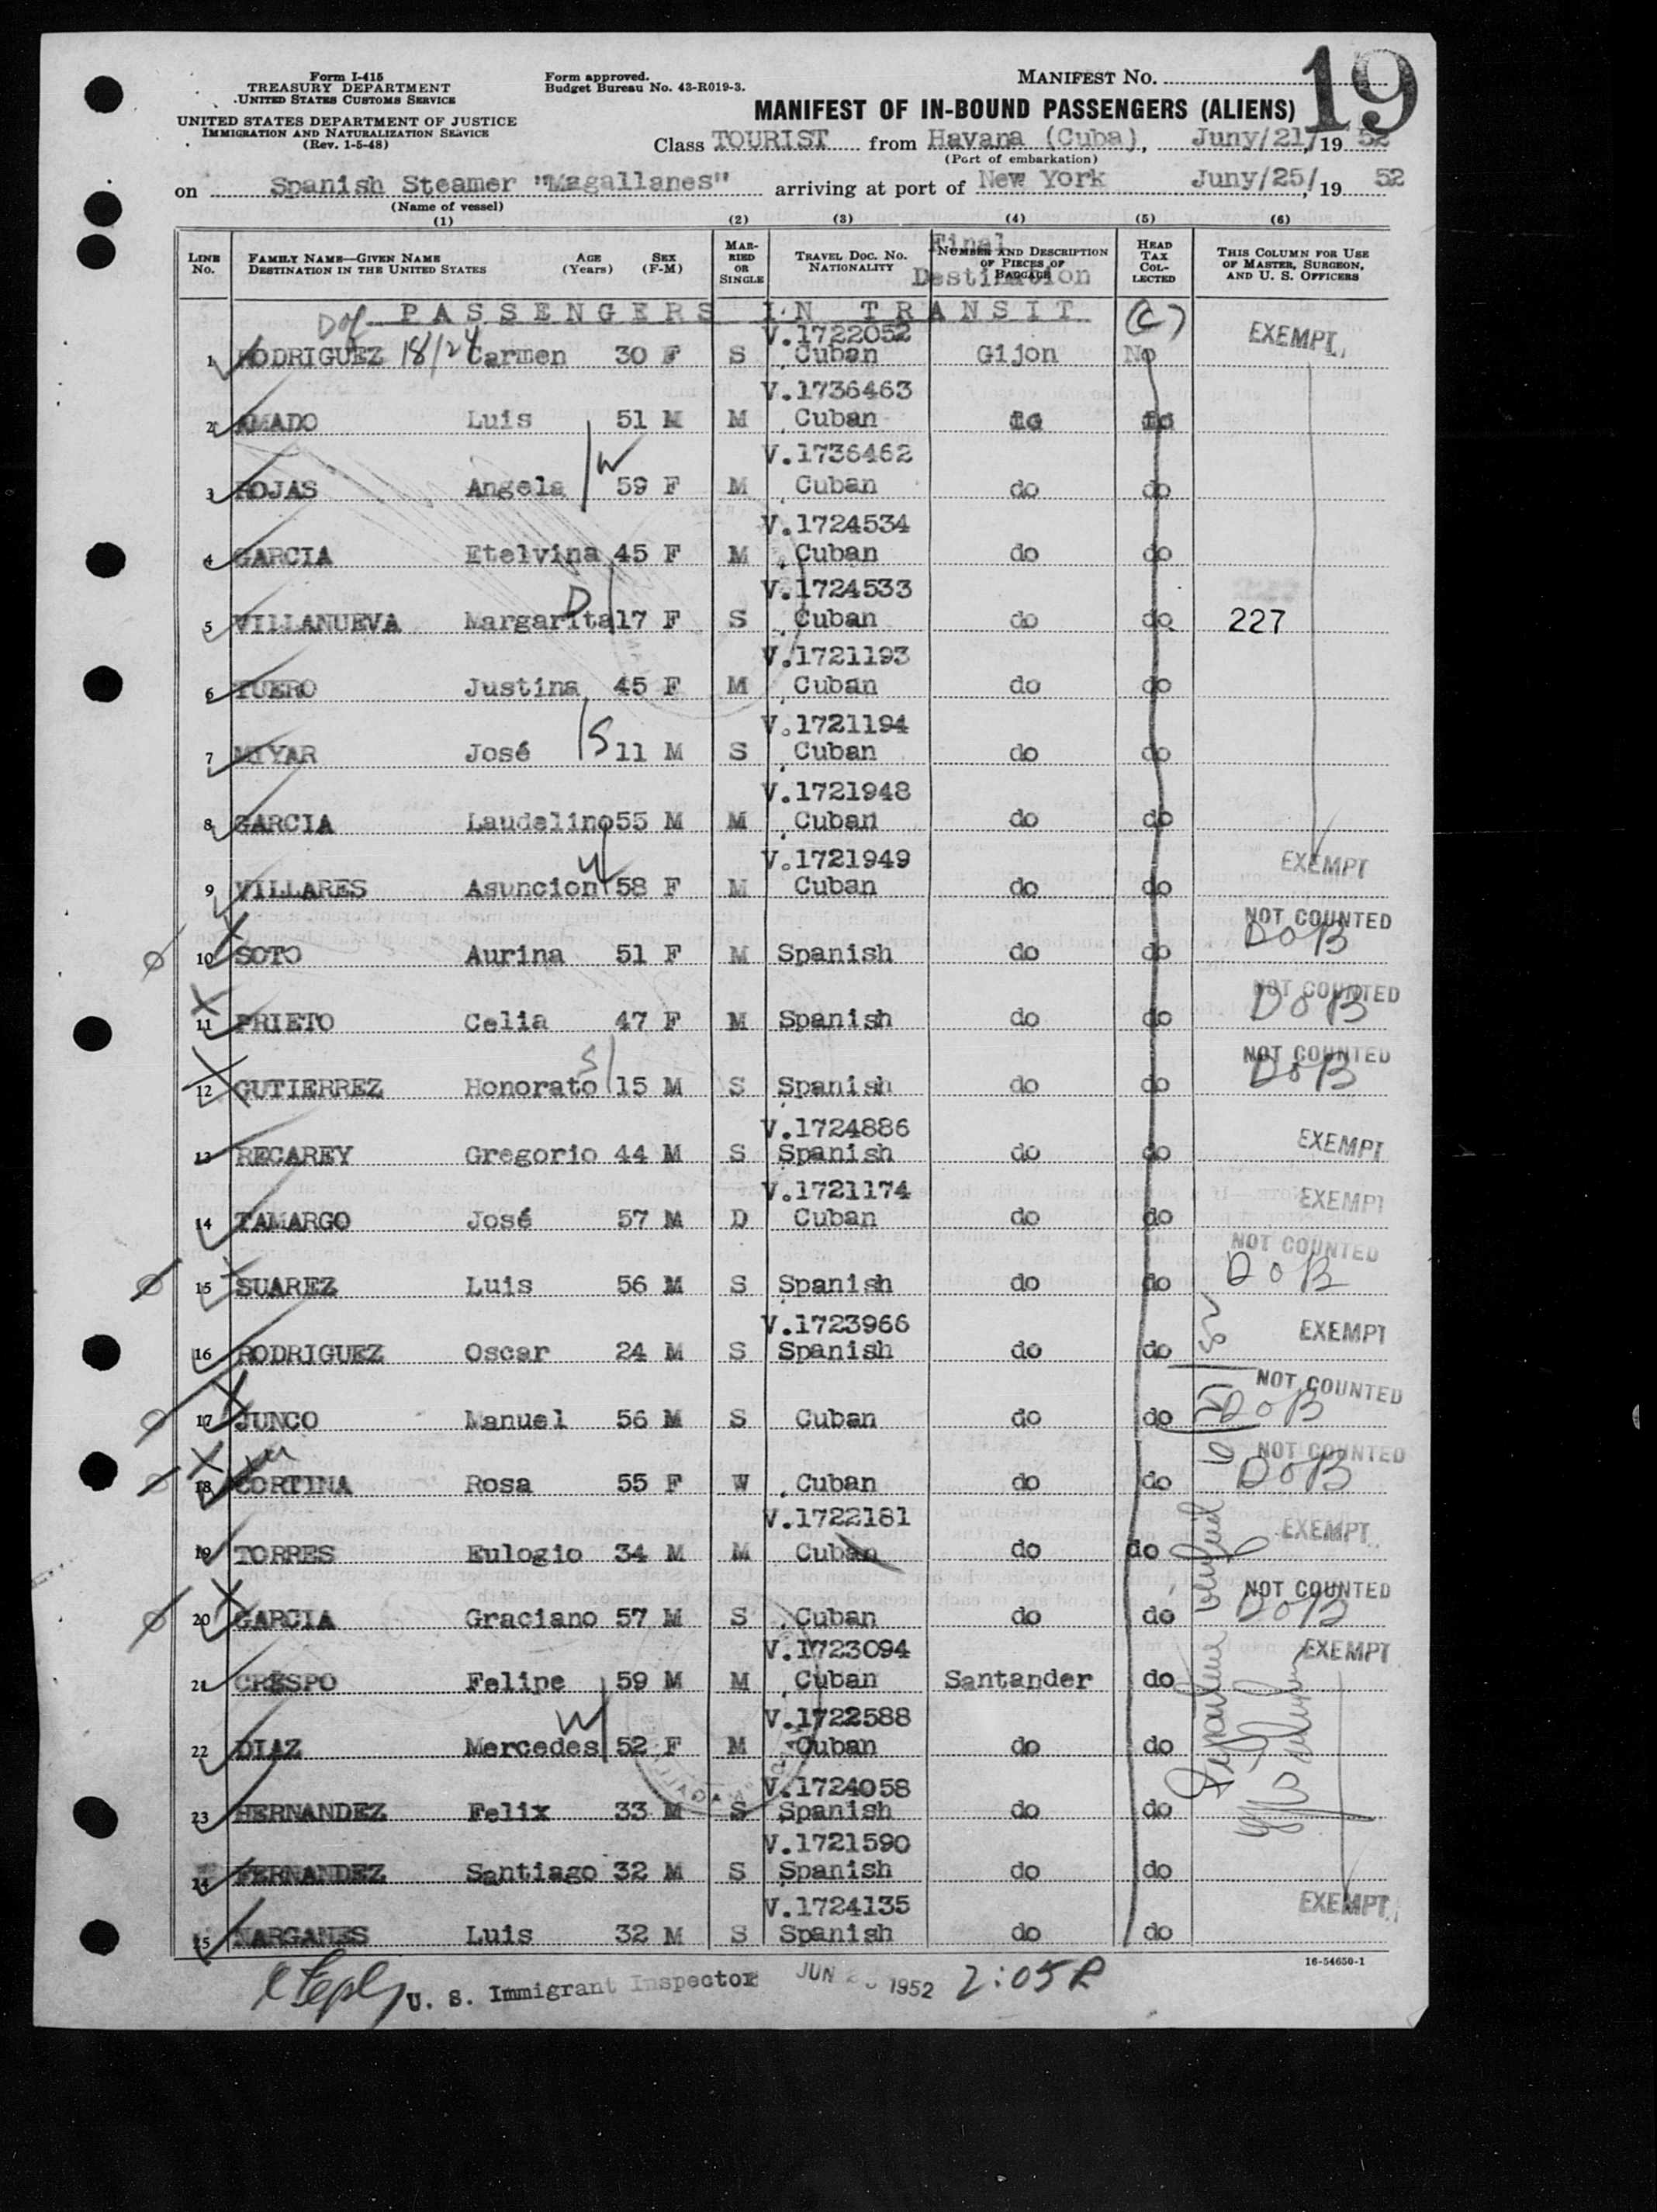 Form I-415
TREASURY DEPARTMENT
UNITED STATES CUSTOMS SERVICE
UNITED STATES DEPARTMENT OF JUSTICE
IMMIGRATION AND NATURALIZATION SERVICE
(Rev. 1-5-48)
Form approved.
Budget Bureau No. 43-R019-3.
MANIFEST No.
19
MANIFEST OF IN-BOUND PASSENGERS (ALIENS)
Class TOURIST from Havana (Cuba), Juny/21/, 19 52
(Port of embarkation)
on Spanish Steamer "Magallanes" arriving at port of New York Juny/25/, 19 52
(Name of vessel)
(1) (2) (3) (4) (5) (6)
LINE No. FAMILY NAME—GIVEN NAME DESTINATION IN THE UNITED STATES AGE (Years) SEX (F-M) MARRIED OR SINGLE TRAVEL DOC. No. NATIONALITY NUMBER AND DESCRIPTION OF PIECES OF BAGGAGE HEAD TAX COLLECTED THIS COLUMN FOR USE OF MASTER, SURGEON, AND U. S. OFFICERS
Final Destination
PASSENGERS IN TRANSIT (C)
V.1722052 EXEMPT
1 RODRIGUEZ 18/24 Carmen 30 F S Cuban Gijon No
V.1736463
2 AMADO Luis 51 M M Cuban do do
V.1736462
W
3 ROJAS Angela 59 F M Cuban do do
V.1724534
4 GARCIA Etelvina 45 F M Cuban do do
V.1724533
D
5 VILLANUEVA Margarita 17 F S Cuban do do 227
V.1721193
6 TUERO Justina 45 F M Cuban do do
V.1721194
S
7 MIYAR José 11 M S Cuban do do
V.1721948
8 GARCIA Laudelino 55 M M Cuban do do
V.1721949 EXEMPT
W
9 VILLARES Asuncion 58 F M Cuban do do
NOT COUNTED
10 SOTO Aurina 51 F M Spanish do do DoB
NOT COUNTED
11 PRIETO Celia 47 F M Spanish do do DoB
NOT COUNTED
S
12 GUTIERREZ Honorato 15 M S Spanish do do DoB
V.1724886 EXEMPT
13 RECAREY Gregorio 44 M S Spanish do do
V.1721174 EXEMPT
14 TAMARGO José 57 M D Cuban do do
NOT COUNTED
15 SUAREZ Luis 56 M S Spanish do do DoB
V.1723966 EXEMPT
16 RODRIGUEZ Oscar 24 M S Spanish do do
NOT COUNTED
17 JUNCO Manuel 56 M S Cuban do do DoB
NOT COUNTED
18 CORTINA Rosa 55 F W Cuban do do DoB
V.1722181 EXEMPT
19 TORRES Eulogio 34 M M Cuban do do
NOT COUNTED
20 GARCIA Graciano 57 M S Cuban do do DoB
V.1723094 EXEMPT
21 CRESPO Felipe 59 M M Cuban Santander do
V.1722588
W
22 DIAZ Mercedes 52 F M Cuban do do
V.1724058
23 HERNANDEZ Felix 33 M S Spanish do do
V.1721590
24 FERNANDEZ Santiago 32 M S Spanish do do
V.1724135 EXEMPT
25 NARGANES Luis 32 M S Spanish do do
Departure verified
16-54650-1
U. S. Immigrant Inspector JUN 1952 2:05 P